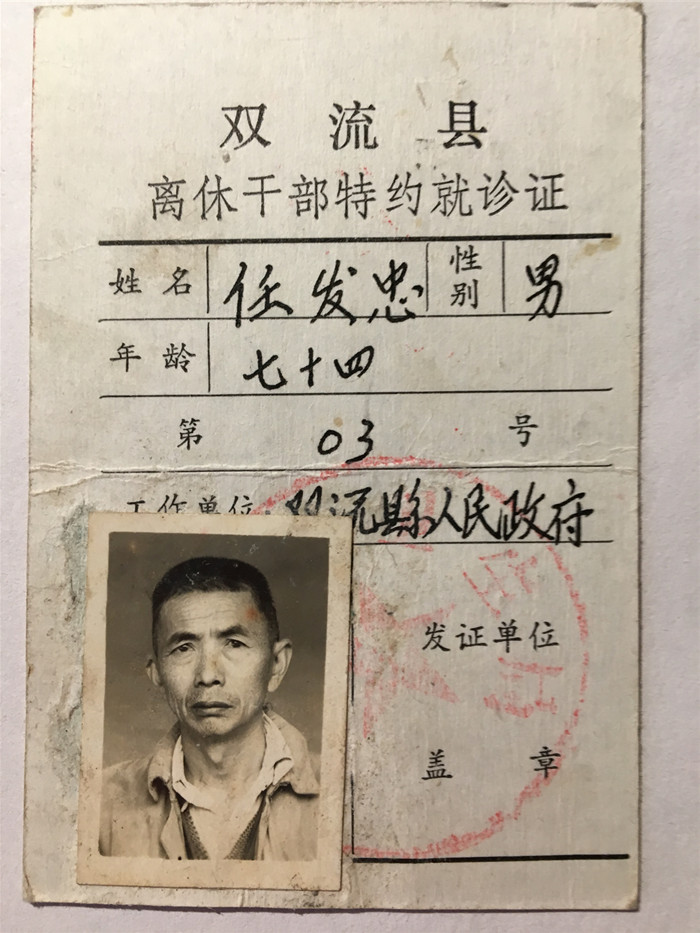 双流县
离休干部特约就诊证
姓名 任发忠 性别 男
年龄 七十四
第 03 号
工作单位：双流县人民政府
发证单位
盖章